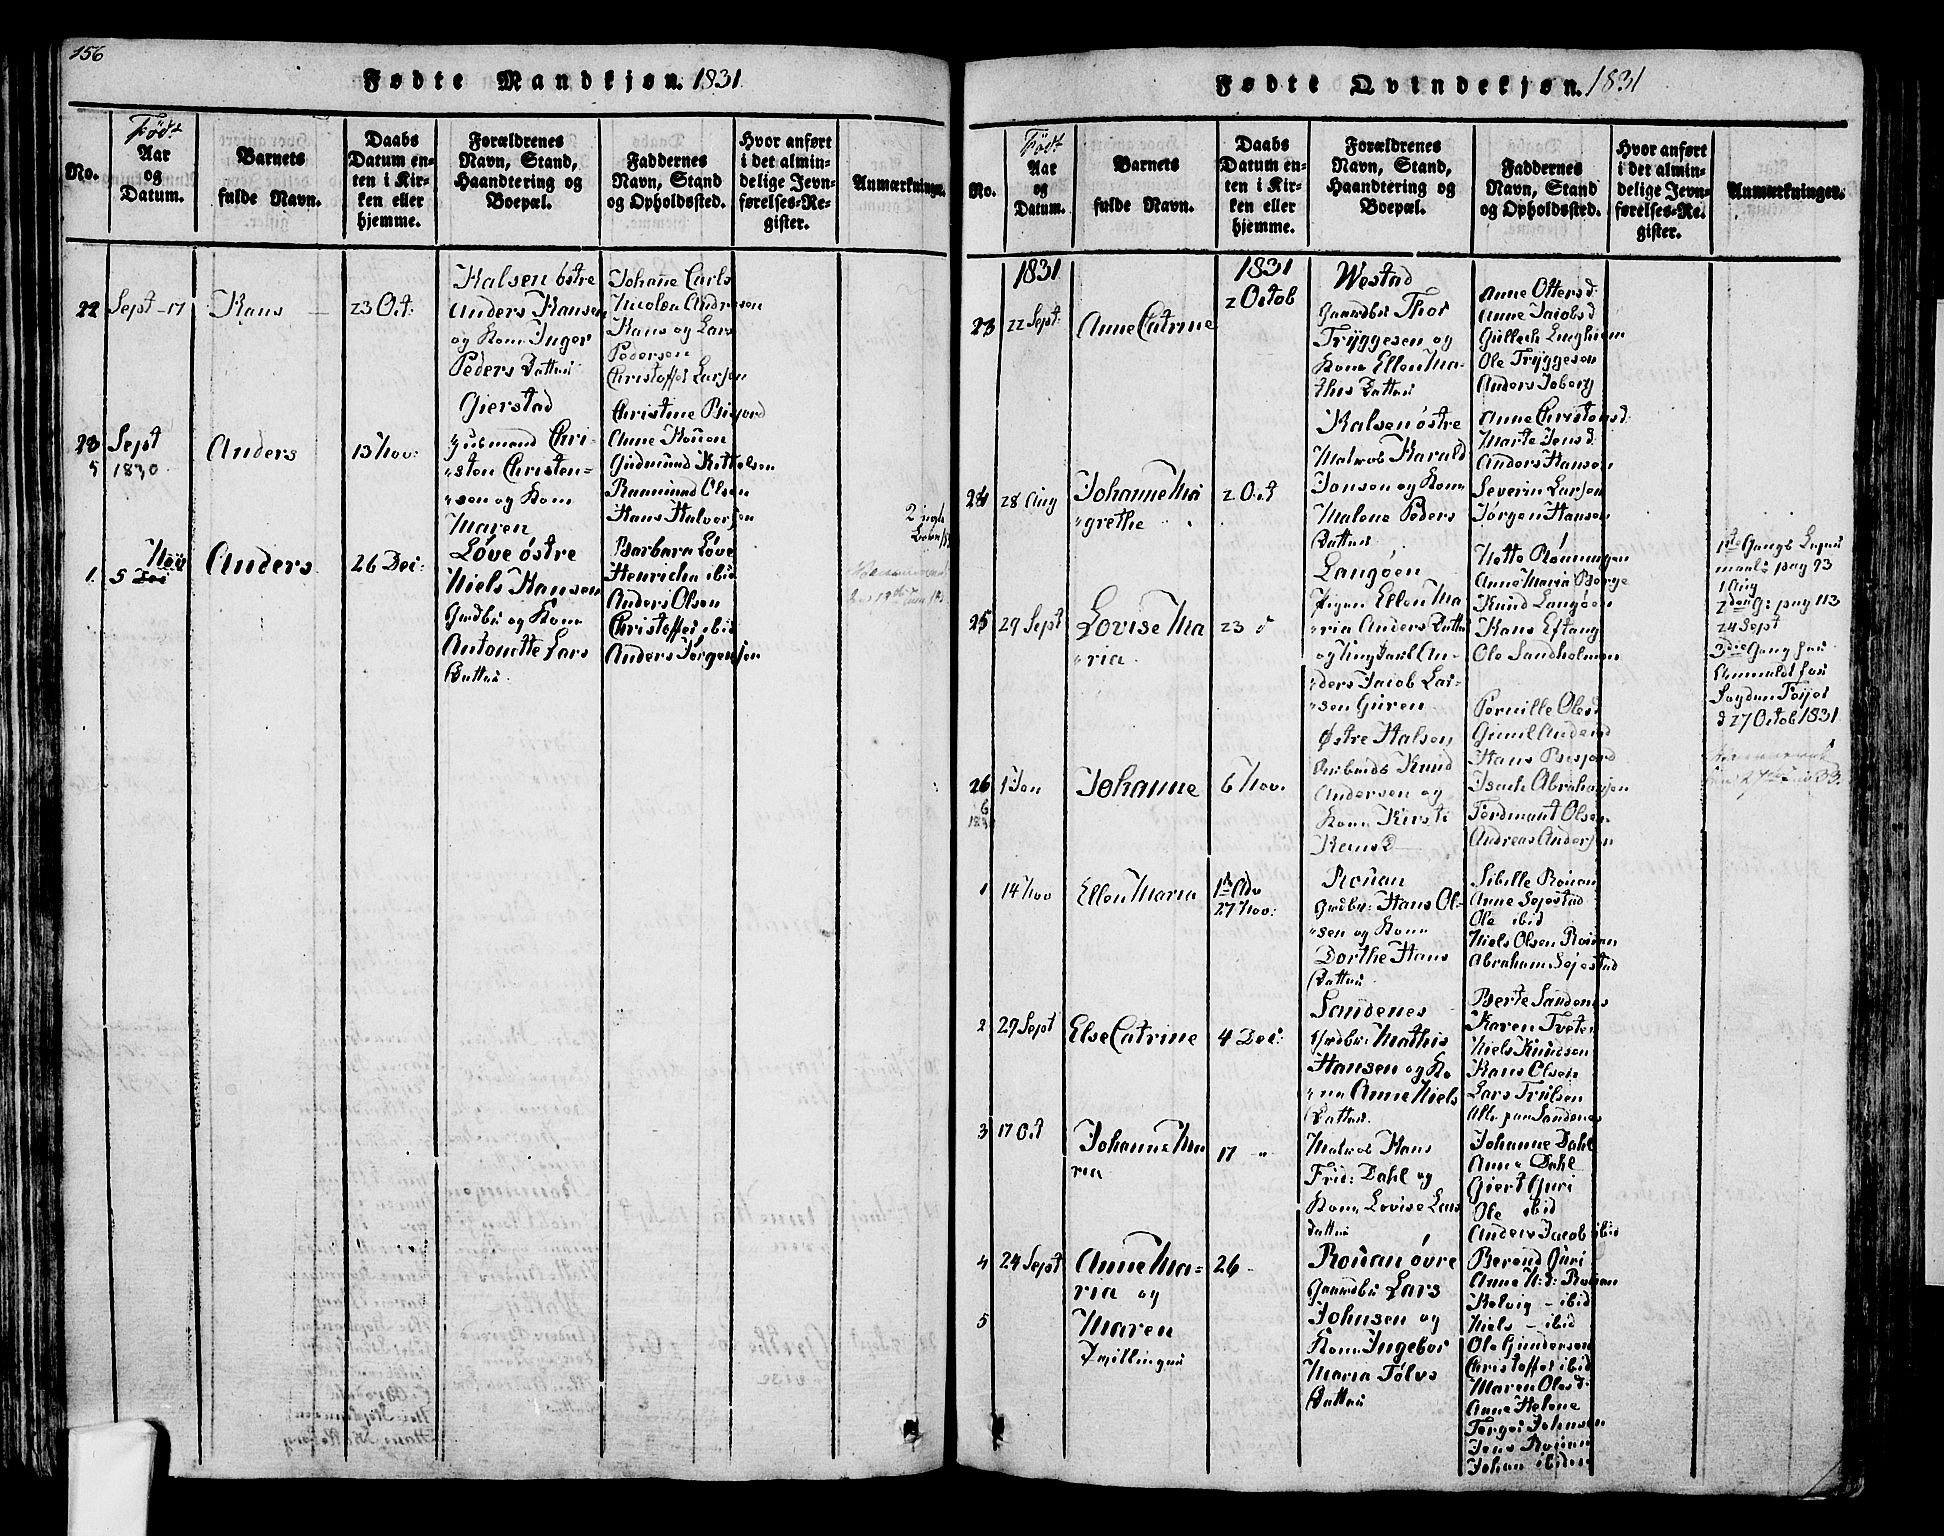 156
Fødte Mandkjøn. 1831
No.
Født
Aar
og
Datum.
Barnets
fulde Navn.
Daabs
Datum en-
ten i Kir-
ken eller
hjemme.
Forældrenes
Navn, Stand,
Haandtering og
Boepæl.
Faddernes
Navn, Stand
og Opholdssted.
Hvor anført
i det almin-
delige Jevn-
førelses-Re-
gister.
Anmærkninger.
22
Sept 17
Hans
23 Oct:
Halsen østre
Anders Hansen
og Kone Inger
Peders Datter
Johanne Carls
Nicolea Andresen
Hans og Lars
Pedersen
Christoffer Larsen
23
5
Sept
1830
Anders
13 Nov:
Gierstad
Huusmand Chri-
sten Christen-
sen og Kone
Maren
Christine Bisjord
Anne Rouen
Gudmund Kittelsen
Raamund Olsen
Hans Halvorsen
1.
5 Nov
Anders
26 Dec:
Løve østre
Niels Hansen
Grdbr og Kone
Antonette Lars
Datter
Barbara Løve
Henricha ibid
Anders Olsen
Christoffer ibid
Anders Jørgensen
Fødte Qvindekjøn. 1831
No.
Født
Aar
og
Datum.
Barnets
fulde Navn.
Daabs
Datum en-
ten i Kir-
ken eller
hjemme.
Forældrenes
Navn, Stand,
Haandtering og
Boepæl.
Faddernes
Navn, Stand
og Opholdssted.
Hvor anført
i det almin-
delige Jevn-
førelses-Re-
gister.
Anmærkninger.
1831
1831
23
22 Sept:
Anne Catrine
2 Octob
Westad
Gaardbr Thor
Tryggesen og
Kone Ellen Ma-
this Datter
Anne Ottersd:
Anne Jacobsd
Gullech Lugheim
Ole Tryggesen
Anders Joberg
24
28 Aug
Johanne Ma
grethe
2 Oct
Halsen østre
Matros Harald
Jonsen og Kone
Malene Peders
Datter
Anne Christensd
Marte Jensd
Anders Hansen
Severin Larsen
Jørgen Hansen
25
29 Sept
Lovise Ma
ria
23 d
Langøen
Pigen Ellen Ma
ria Anders Datter
og Ungkarl An-
ders Jacob Lar-
sen Guren
Nette Rønningen
Anne Maria Berge
Knud Langøen
Hans Eftang
Ole Sandholmen
1ste Gangs Leier
maal: pag 93
1 Aug
2den G: pag 113
24 Sept
3die Gang
d 27 Octob 1831
26
6
1 Jan
Johanne
6 Nov.
Østre Halsen
Arbmd: Knud
Andersen og
Kone Kirsti
Hansd
Pernille Olesd
Gunil Andersd
Hans Bisjord
Isach Abrahamsen
Ferdinant Olsen
Andreas Andersen
1
14 Nov
Ellen Maria
1ste Adv
27 Nov:
Rouan
Grdbr: Hans Ol-
sen og Kone
Dorthe Hans
Datter
Sibille Rouan
Anne Sejestad
Ole ibid
Niels Olsen Rouan
Abraham Sejestad
2
29 Sept
Else Catrine
4 Dec:
Sandenes
Grdbr: Mathis
Hansen og Ko
ne Anne Niels
Datter
Berte Sandenes
Karen Tveten
Niels Knudsen
Hans Olsen
Lars Trulsen
Alle paa Sandenes
3
17 Oct
Johanne Ma
ria
17 "
Matros Hans
Frid: Dahl og
Kone Lovise Lars
Datter
Johanne Dahl
Anne Dahl
Giert Guri
Ole ibid
Anders Jacob ibid
4
24 Sept
Anne Ma-
ria og
26 -
5
Maren
Tvillinger
Rouan øvre
Gaardbr Lars
Johnsen og
Kone Ingebor
Maria Tølvs
Datter
Berend Guri
Anne N: d: Rouan
Helvig - ibid
Niels - ibid
Ole Gundersen
Christoffer ibid
Maren Olesd:
Anne Helene
Torger Johnsen
Jens Rouan
Johan ibidem